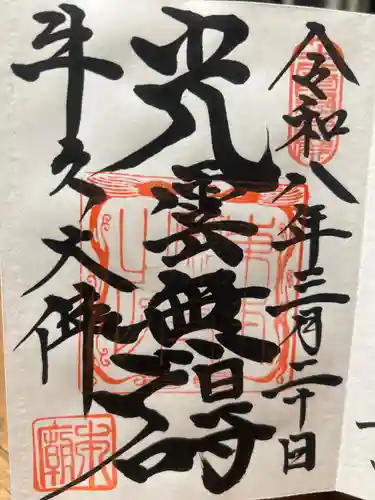 令和八年三月二十日
光雲無碍
牛久大佛